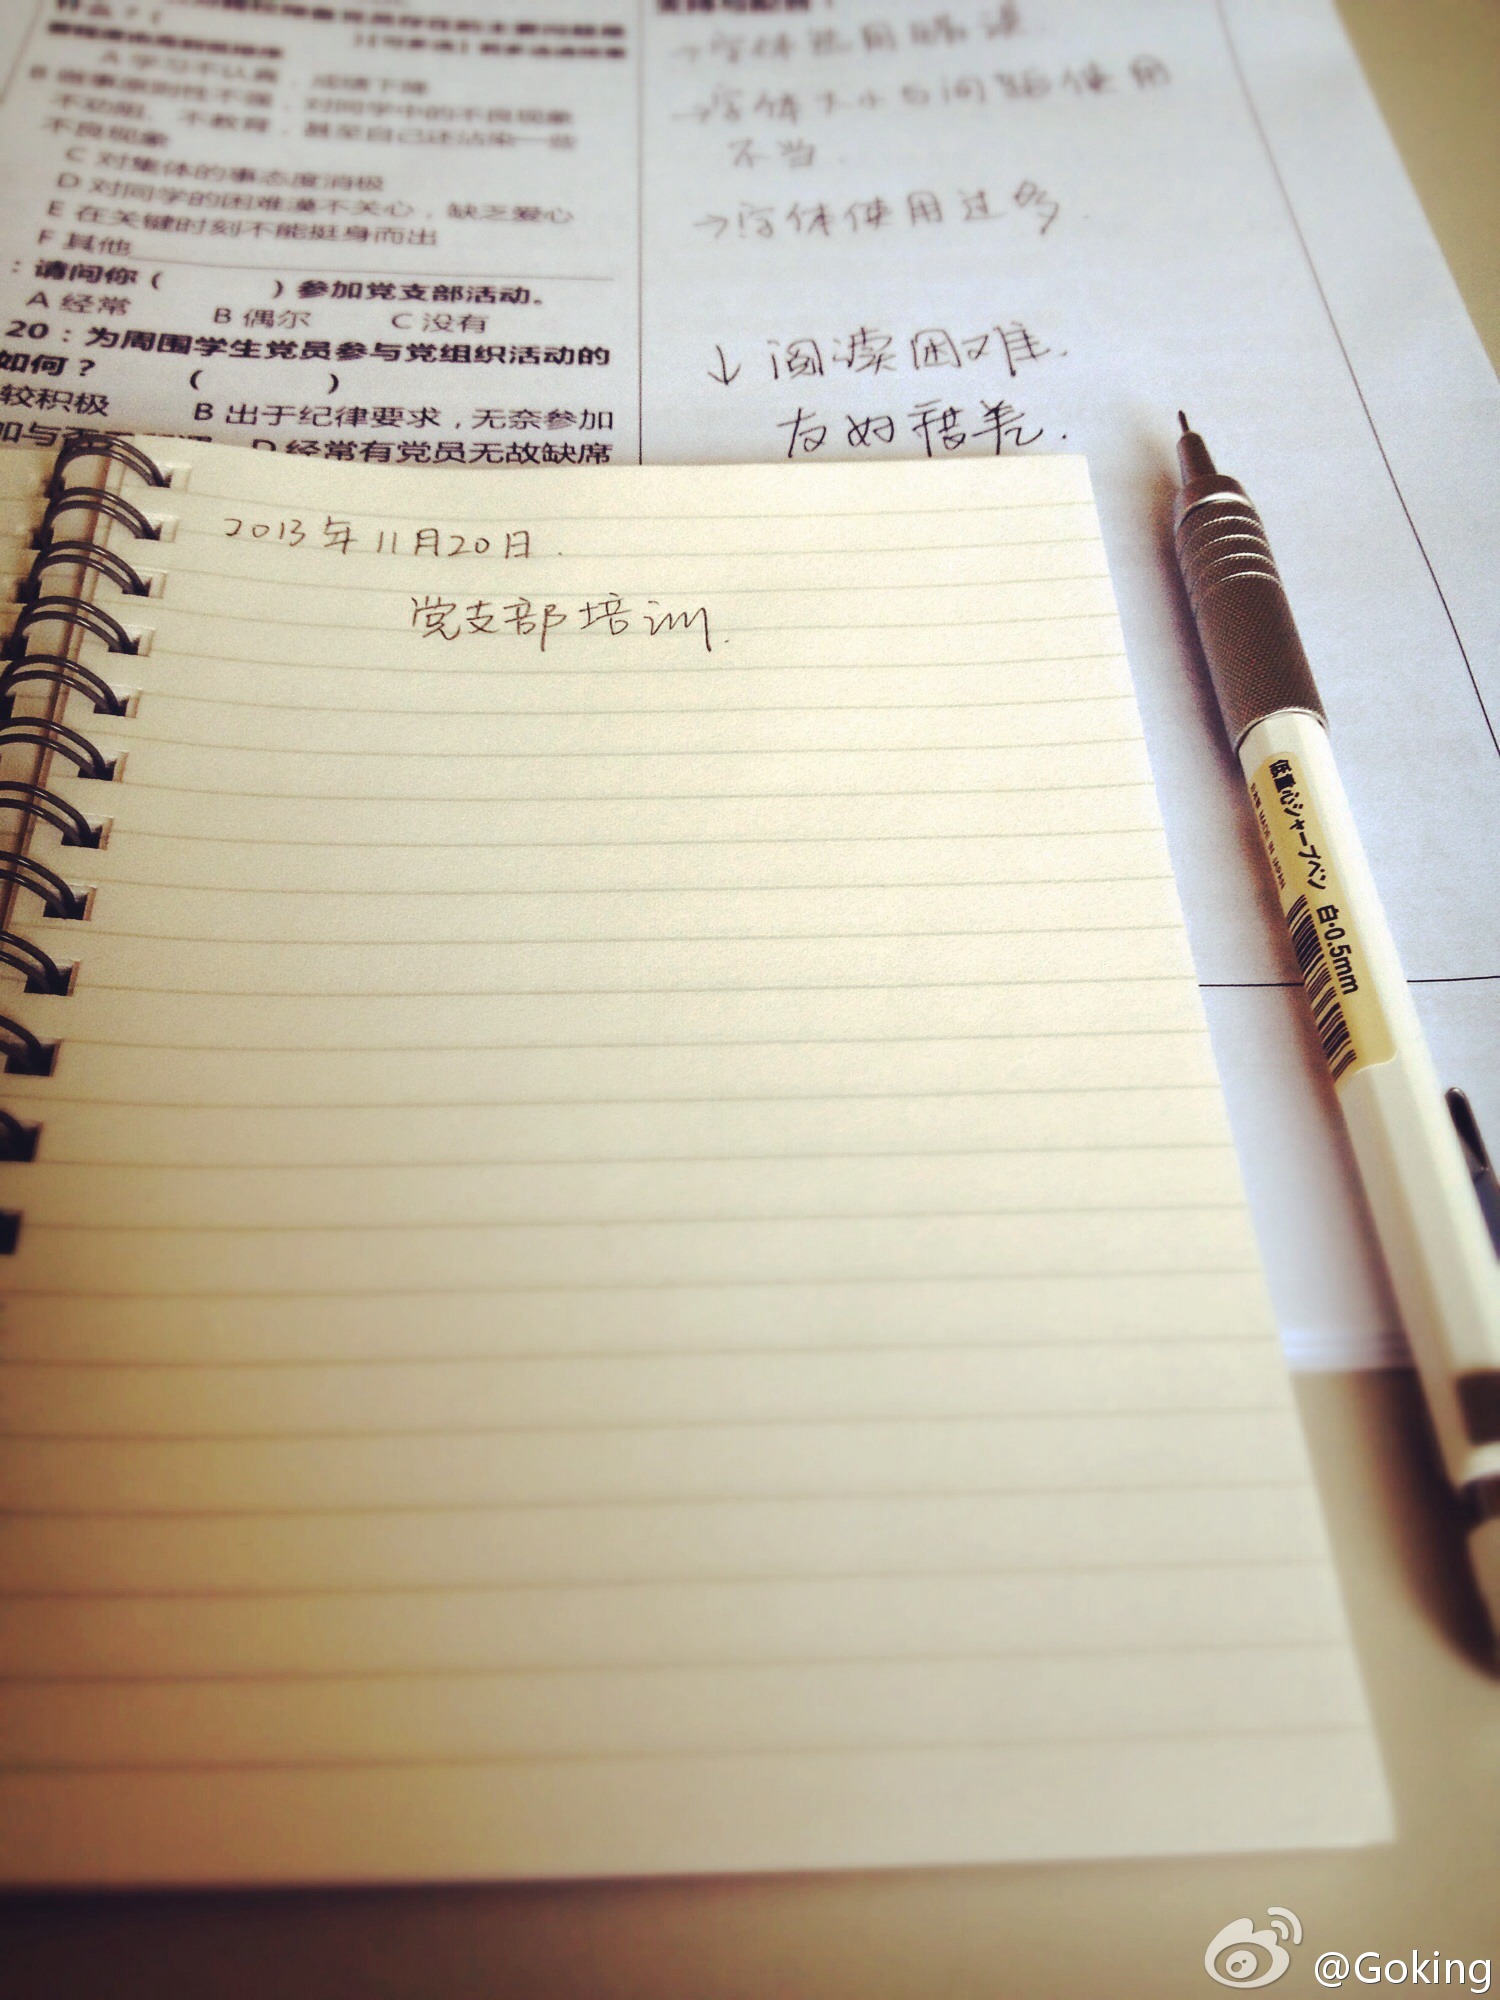 什么？（
A 学习不认真，成绩下降
B 做事原则性不强，对同学中的不良现象
不劝阻、不教育，甚至自己还沾染一些
不良现象
C 对集体的事态度消极
D 对同学的困难漠不关心，缺乏爱心
E 在关键时刻不能挺身而出
F 其他
：请问你（ ）参加党支部活动。
A 经常 B 偶尔 C 没有
20：为周围学生党员参与党组织活动的
如何？ （ ）
较积极 B 出于纪律要求，无奈参加
D 经常有党员无故缺席
→字体选用
→字体大小与间距使用
不当.
→字体使用过多.
↓ 阅读困难.
友好
2013年11月20日.
党支部培训.
低重心シャープペン 白·0.5mm
MADE IN JAPAN
@Goking